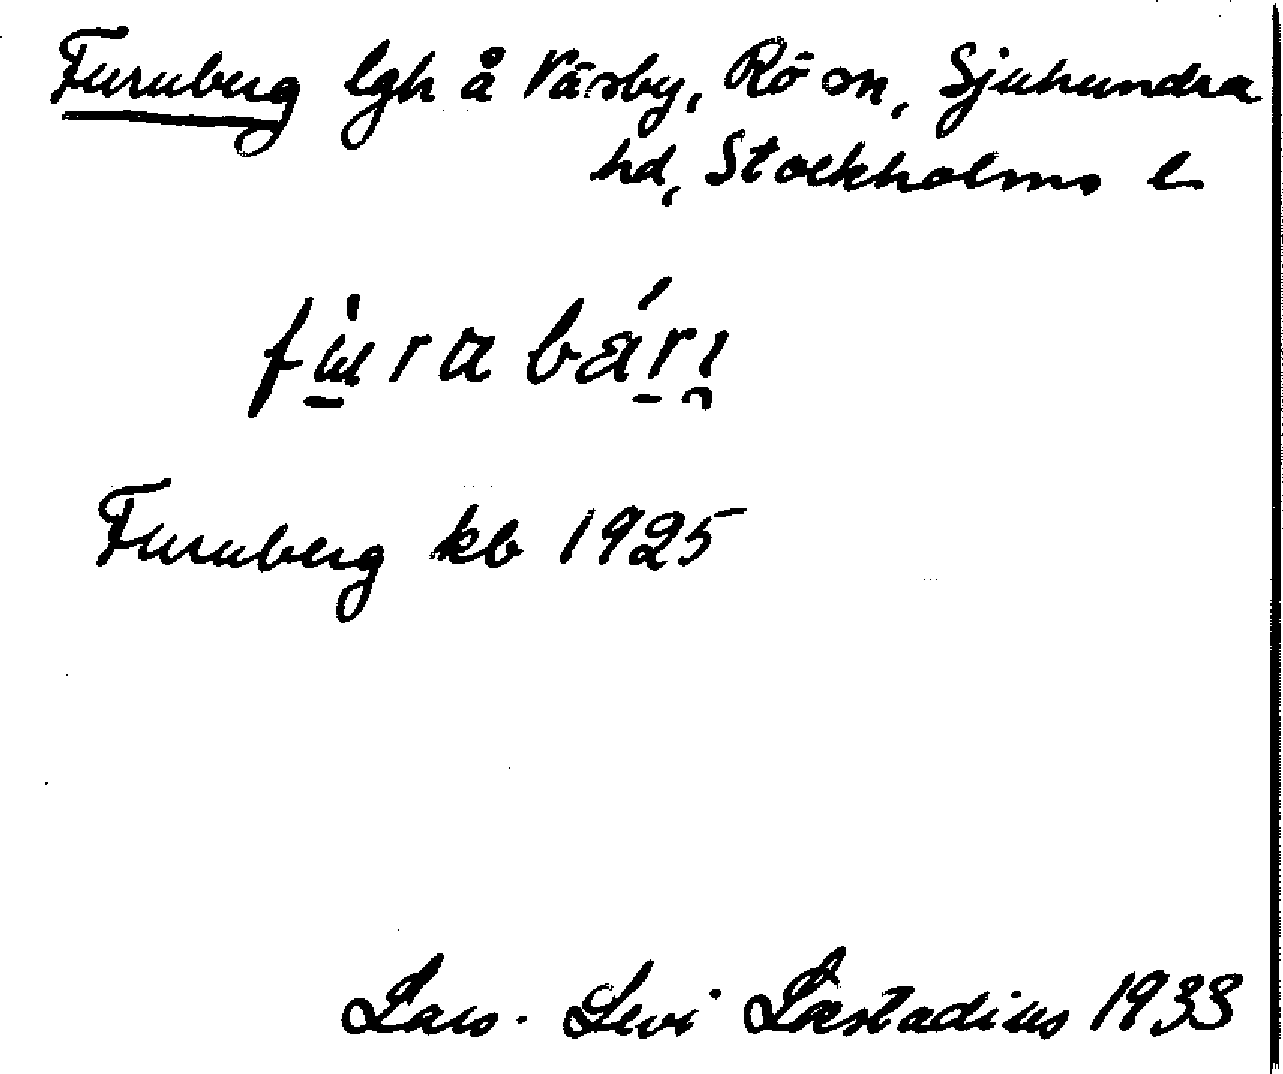 Furuberg lgh å Väsby, Rö sn, Sjuhundra
hd, Stockholms l
Furuberg kb 1925
Lars-Levi Læstadius 1933